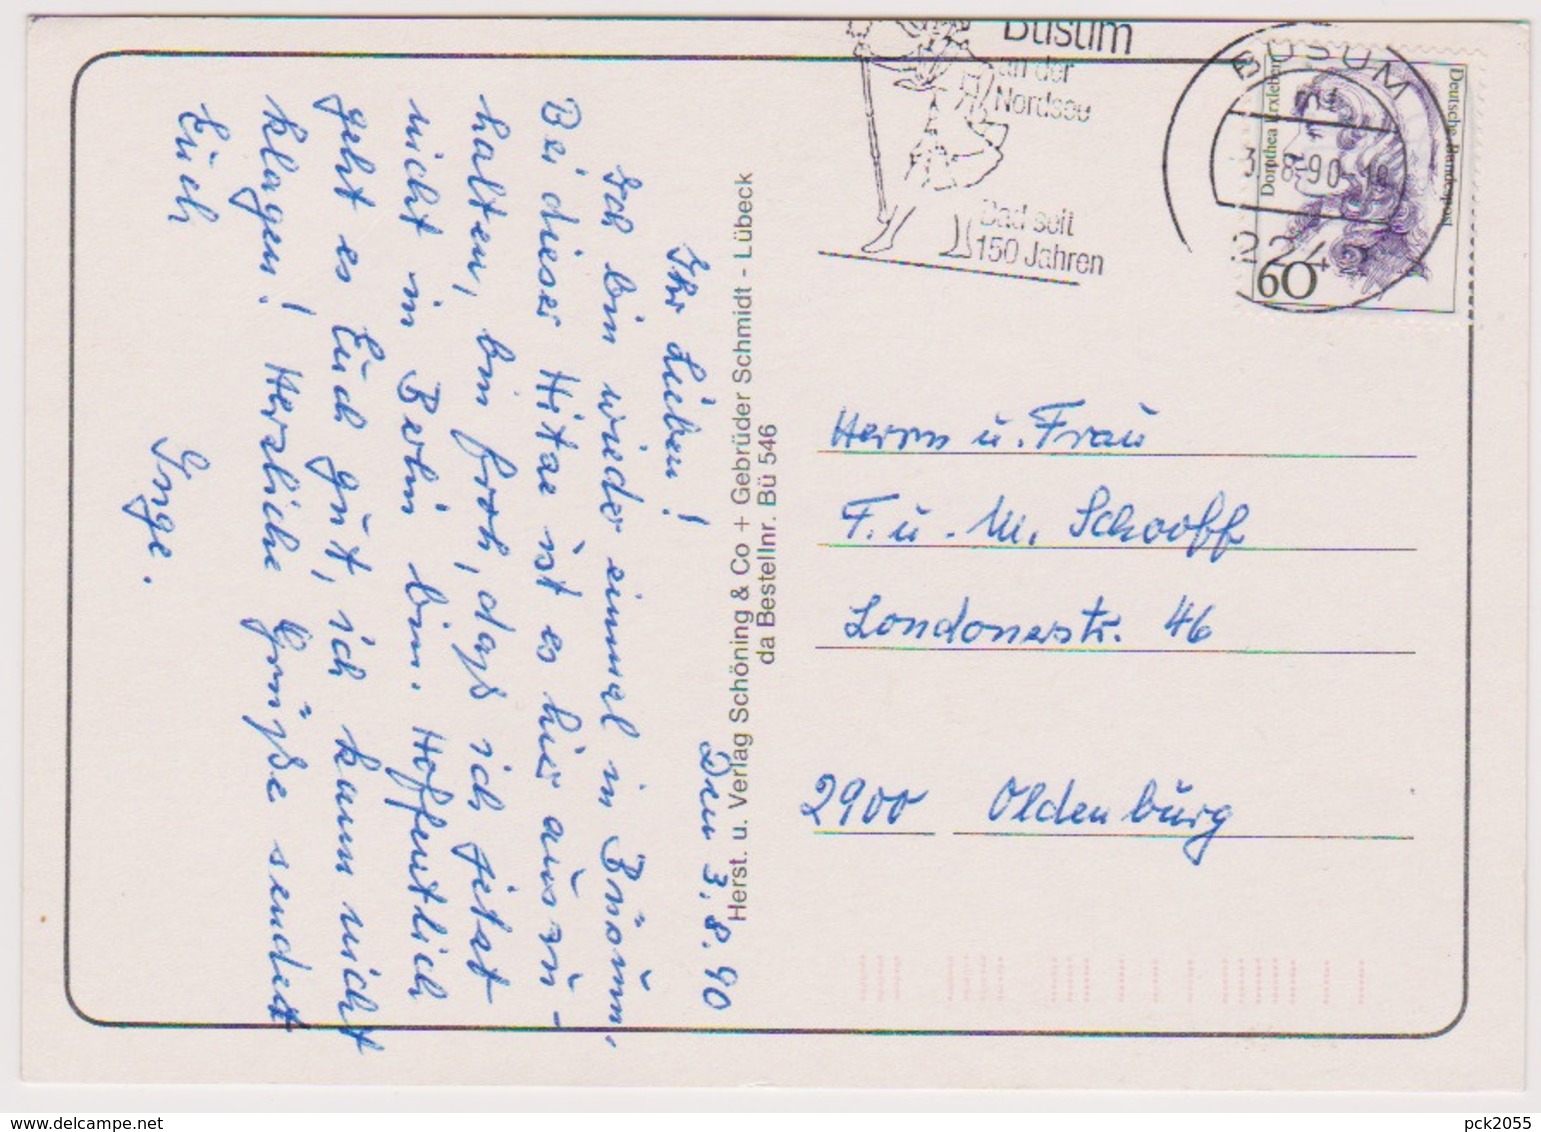 Den 3.8.90
Ihr Lieben!
Ich bin wieder einmal in Büsum.
Bei dieser Hitze ist es hier auszu-
halten, bin froh, daß ich jetzt
nicht in Berlin bin. Hoffentlich
geht es Euch gut, ich kann nicht
klagen! Herzliche Grüße sendet
Euch
Inge.
Herst. u. Verlag Schöning & Co + Gebrüder Schmidt - Lübeck
da Bestellnr. Bü 546
Büsum
an der
Nordsee
Bad seit
150 Jahren
BÜSUM
8.90-18
2242
Deutsche Bundespost
Dorothea Erxleben
60
Herrn u. Frau
F. u. M. Schooff
Londonerstr. 46
2900 Oldenburg
www.delcampe.net
pck2055